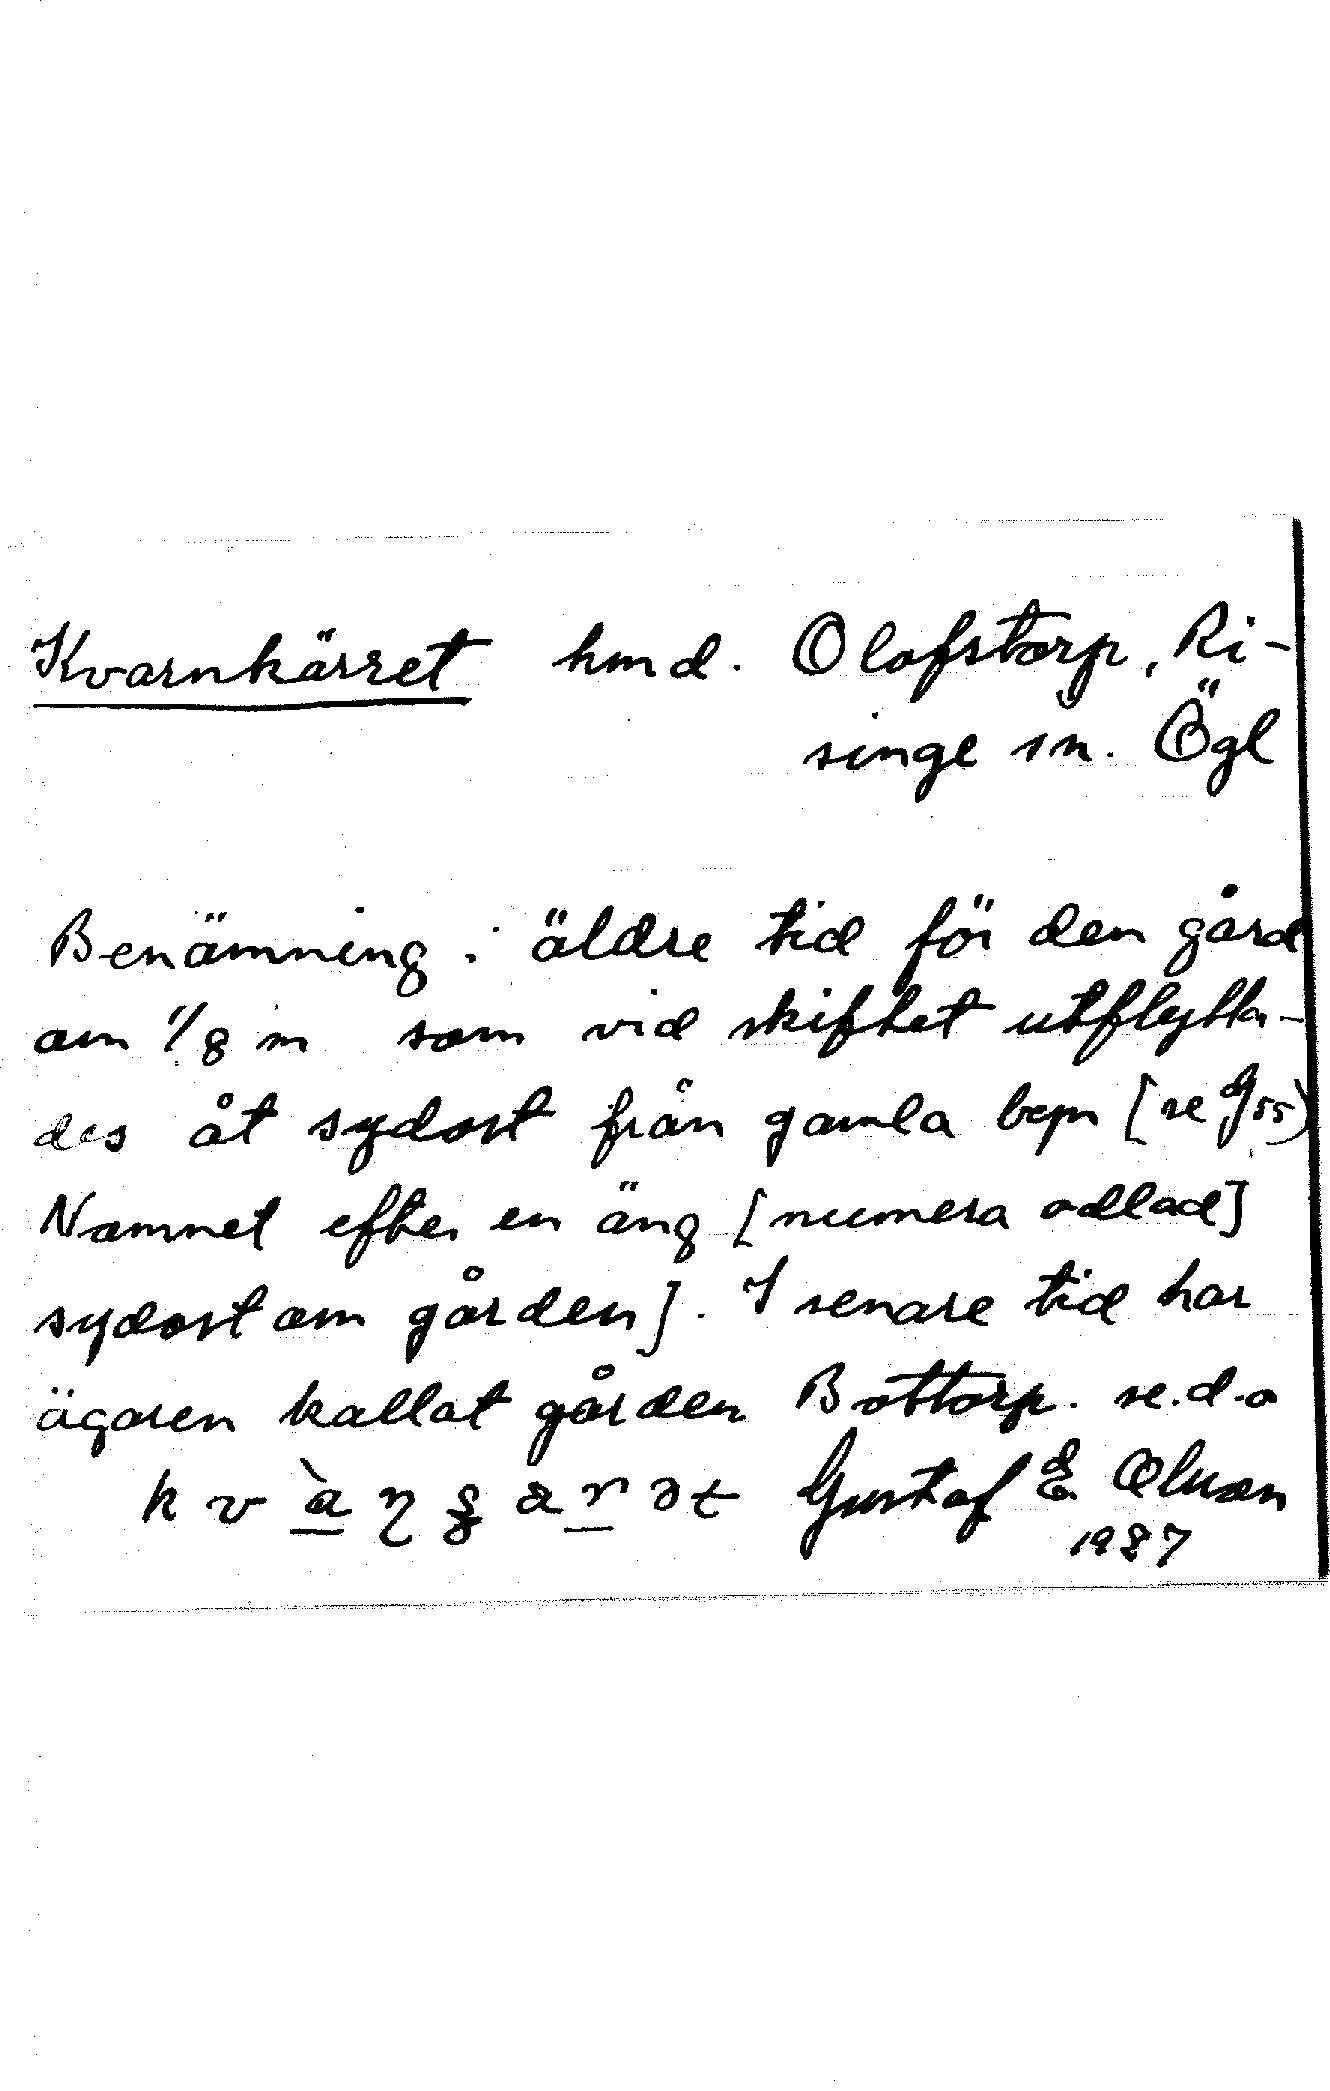 Kvarnkärret hmd. Olofstorp, Ri-
singe sn. Ögl
Benämning i äldre tid för den gård
om 1/8 m som vid skiftet utflytta-
des åt sydost från gamla byn [se G55)
Namnet efter en äng [numera odlad]
sydost om gården]. I senare tid har
ägaren kallat gården Bottorp. se.d.o
Gustaf E Olsson
1927